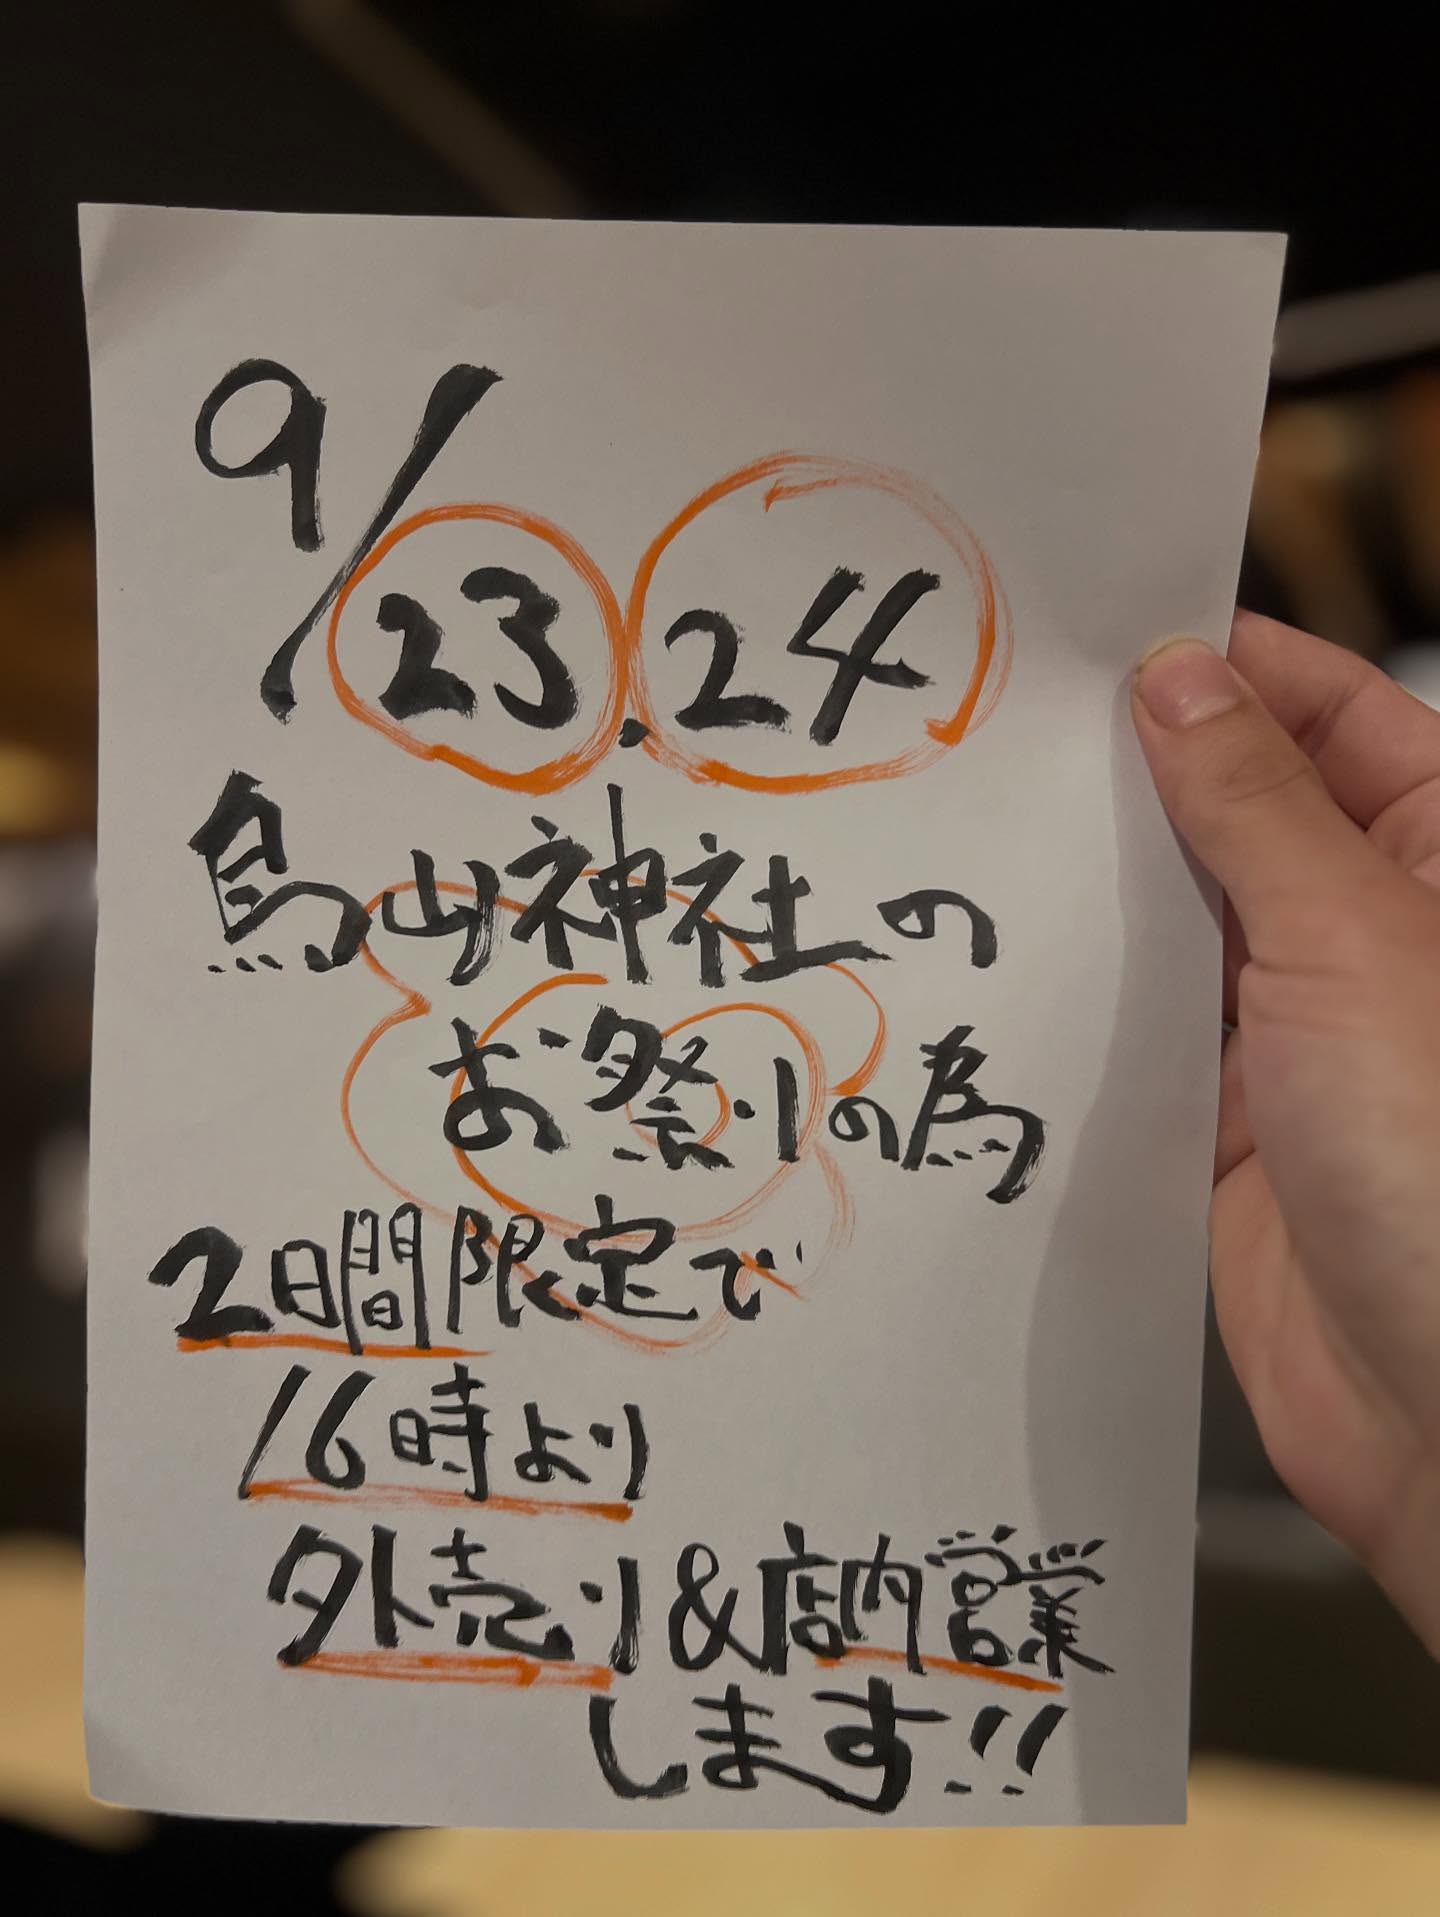 9/23.24
烏山神社の
お祭りの為
2日間限定で
16時より
外売り&店内営業
します!!